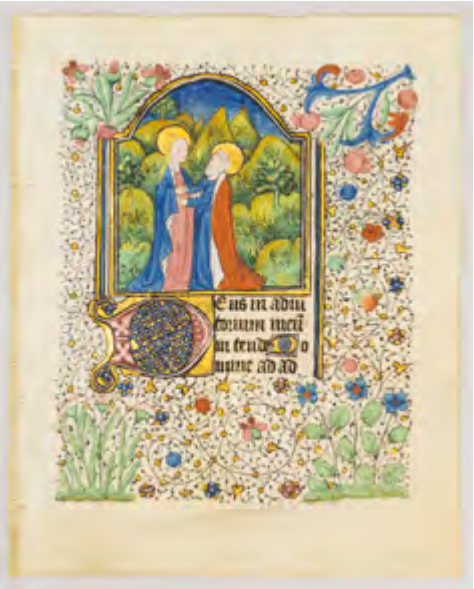 Eus in adiu
torium meū
in tende D o
mine ad ad